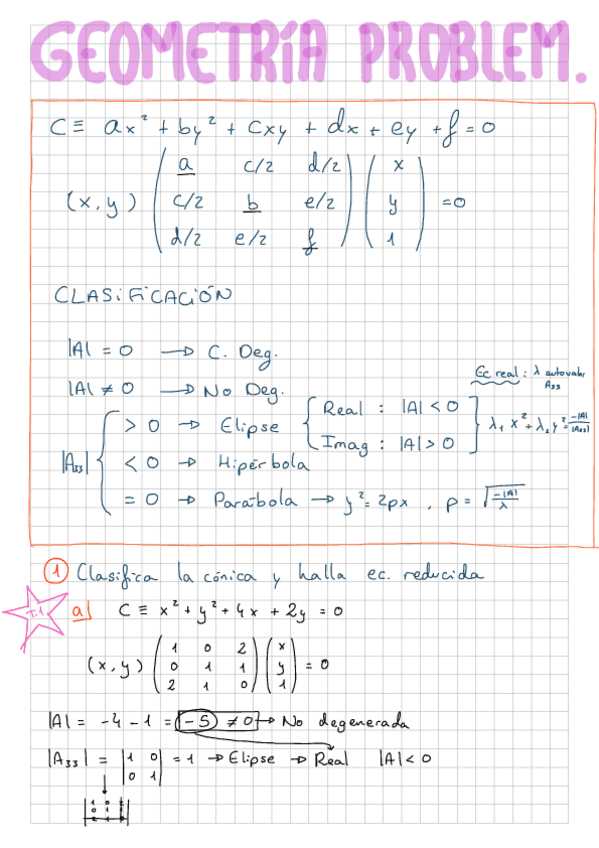 GEOMETRÍA PROBLEM.
C ≡ ax² + by² + cxy + dx + ey + f = 0
(x, y) ( a c/2 d/2 ) ( x )
( c/2 b e/2 ) ( y ) = 0
( d/2 e/2 f ) ( 1 )
CLASIFICACIÓN
|A| = 0 → C. Deg.
Ec. real : λ autovalor
A₃₃
|A| ≠ 0 → No Deg.
|A₃₃| { > 0 → Elipse { Real : |A| < 0
Imag : |A| > 0 } λ₁ x² + λ₂ y² = -|A|/|A₃₃|
< 0 → Hipérbola
= 0 → Parábola → y² = 2px , p = √(-|A|/λ)
1 Clasifica la cónica y halla ec. reducida
T.1 a) C ≡ x² + y² + 4x + 2y = 0
(x, y) ( 1 0 2 ) ( x )
( 0 1 1 ) ( y ) = 0
( 2 1 0 ) ( 1 )
|A| = -4 - 1 = -5 ≠ 0 → No degenerada
|A₃₃| = | 1 0 | = 1 → Elipse → Real |A| < 0
| 0 1 |